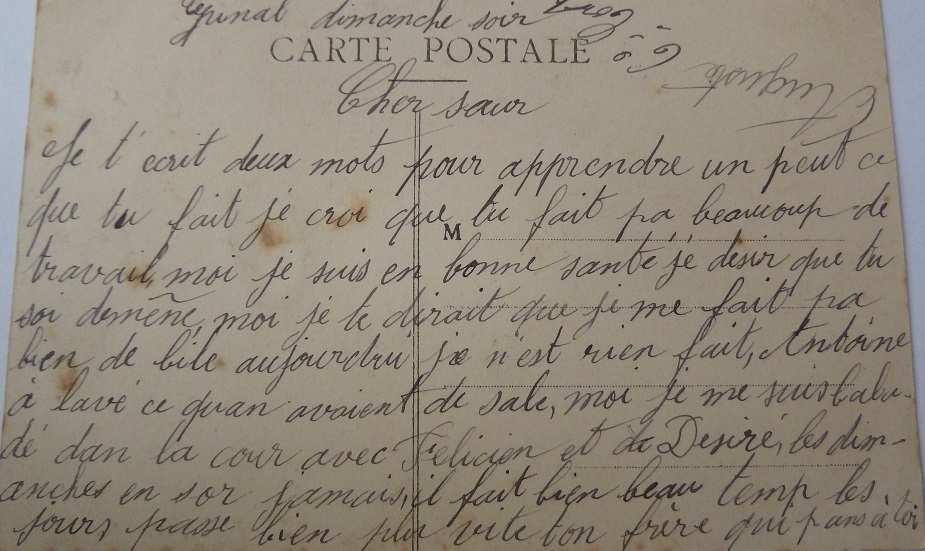 Epinal dimanche soir
CARTE POSTALE
Cher sœur
Je t'ecrit deux mots pour apprendre un peut ce
que tu fait je croi que tu fait pa beaucoup de
M
travail, moi je suis en bonne santé je désir que tu
soi demême, moi je te dirait que je me fait pa
bien de bile aujourdrui je n'est rien fait, Antoine
à lavé ce quan avaient de sale, moi je me suis balu-
dé dan la cour avec Felicien et Desiré, les dim-
anches en sor jamais, il fait bien beau temp les
jours passe bien plu vite ton frère qui pans a toi